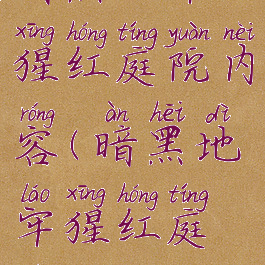 xīng hóng tíng yuàn nèi
猩红庭院内
róng àn hēi dì
容(暗黑地
láo xīng hóng tíng
牢猩红庭